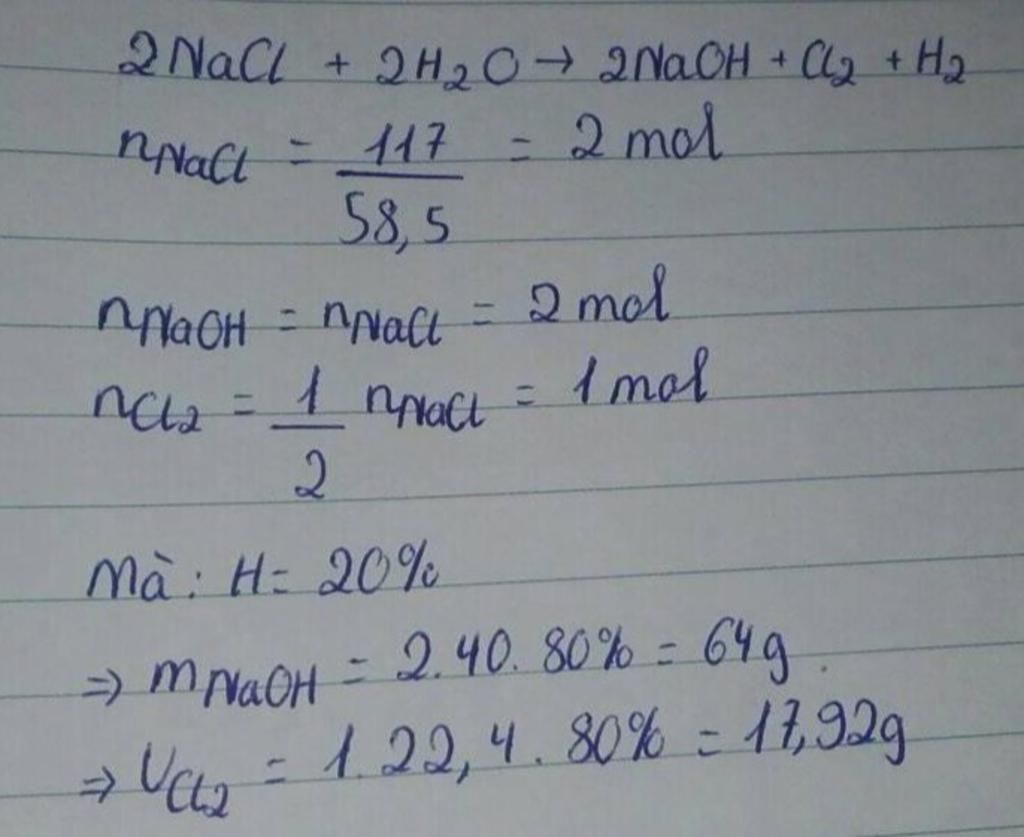 2NaCl + 2H₂O → 2NaOH + Cl₂ + H₂
nNaCl = 117/58,5 = 2 mol
nNaOH = nNaCl = 2 mol
nCl₂ = 1/2 nNaCl = 1 mol
Mà: H = 20%
⇒ mNaOH = 2.40.80% = 64g.
⇒ VCl₂ = 1.22,4.80% = 17,92g